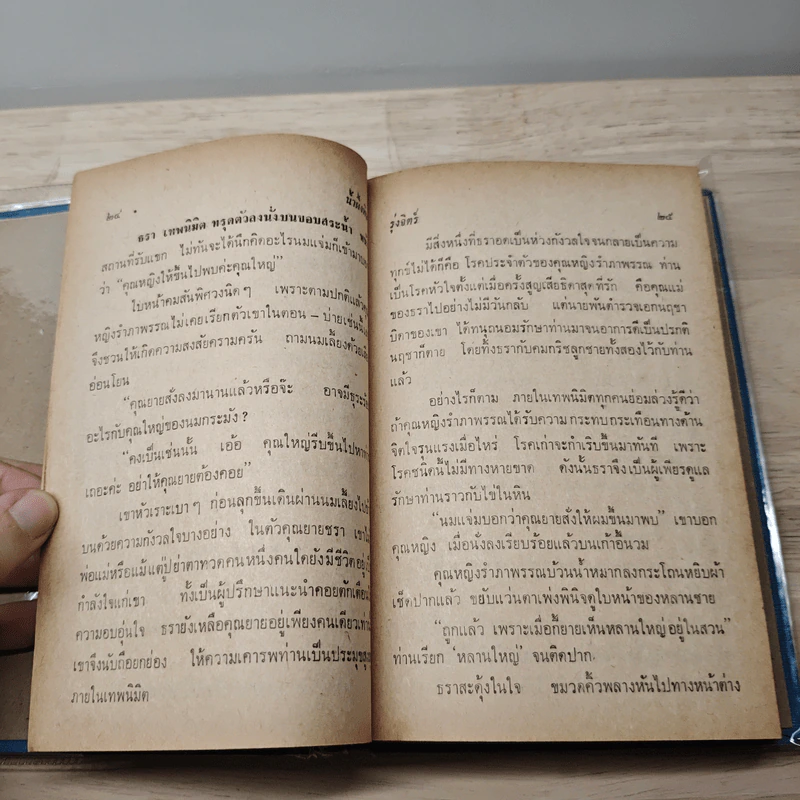 ๒๔
ธรา เทพนิมิต ทรุดตัวลงนั่งบนขอบสระน้ำ
สถานที่รับแขก ไม่ทันจะได้นึกคิดอะไรนมแจ่มก็เข้ามา
ว่า “คุณหญิงให้ขึ้นไปพบค่ะคุณใหญ่”
ใบหน้าคมสันพิศวงนิดๆ เพราะตามปกติแล้ว
หญิงรำภาพรรณไม่เคยเรียกตัวเขาในตอน – บ่ายเช่นนี้
จึงชวนให้เกิดความสงสัยครามครัน ถามนมเลี้ยงด้วย
อ่อนโยน
“คุณยายสั่งลงมานานแล้วหรือจ๊ะ อาจมีธุระ
อะไรกับคุณใหญ่ของนมกระมัง ?
“คงเป็นเช่นนั้น เอ้อ คุณใหญ่รีบขึ้นไปหา
เถอะค่ะ อย่าให้คุณยายต้องคอย”
เขาหัวเราะเบาๆ ก่อนลุกขึ้นเดินผ่านนมเลี้ยงไป
บนด้วยความกังวลใจบางอย่าง ในตัวคุณยายชรา
พ่อแม่หรือแม้แต่ปู่ย่าตาทวดคนหนึ่งคนใดยังมีชีวิตอยู่
กำลังใจแก่เขา ทั้งเป็นผู้ปรึกษาแนะนำคอยตักเตือน
ความอบอุ่นใจ ธรายังเหลือคุณยายอยู่เพียงคนเดียว
เขาจึงนับถือยกย่อง ให้ความเคารพท่านเป็นประมุข
ภายในเทพนิมิต
รุ่งจิตร์ ๒๕
มีสิ่งหนึ่งที่ธราอดเป็นห่วงกังวลใจจนกลายเป็นความ
ทุกข์ไม่ได้ก็คือ โรคประจำตัวของคุณหญิงรำภาพรรณ ท่าน
เป็นโรคหัวใจตั้งแต่เมื่อครั้งสูญเสียธิดาสุดที่รัก คือคุณแม่
ของธราไปอย่างไม่มีวันกลับ แต่นายพันตำรวจเอกนฤชา
บิดาของเขา ได้ทนุถนอมรักษาท่านมาจนอาการดีเป็นปรกติ
นฤชาก็ตาย โดยทิ้งธรากับคมกริชลูกชายทั้งสองไว้กับท่าน
แล้ว
อย่างไรก็ตาม ภายในเทพนิมิตทุกคนย่อมล่วงรู้ดีว่า
ถ้าคุณหญิงรำภาพรรณได้รับความกระทบกระเทือนทางด้าน
จิตใจรุนแรงเมื่อไหร่ โรคเก่าจะกำเริบขึ้นมาทันที เพราะ
โรคชนิดนี้ไม่มีทางหายขาด ดังนั้นธราจึงเป็นผู้เพียรดูแล
รักษาท่านราวกับไข่ในหิน
“นมแจ่มบอกว่าคุณยายสั่งให้ผมขึ้นมาพบ” เขาบอก
คุณหญิง เมื่อนั่งลงเรียบร้อยแล้วบนเก้าอี้นวม
คุณหญิงรำภาพรรณบ้วนน้ำหมากลงกระโถนหยิบผ้า
เช็ดปากแล้ว ขยับแว่นตาเพ่งพินิจดูใบหน้าของหลานชาย
“ถูกแล้ว เพราะเมื่อกี้ยายเห็นหลานใหญ่อยู่ในสวน”
ท่านเรียก ‘หลานใหญ่’ จนติดปาก.
ธราสะดุ้งในใจ ขมวดคิ้วพลางหันไปทางหน้าต่าง